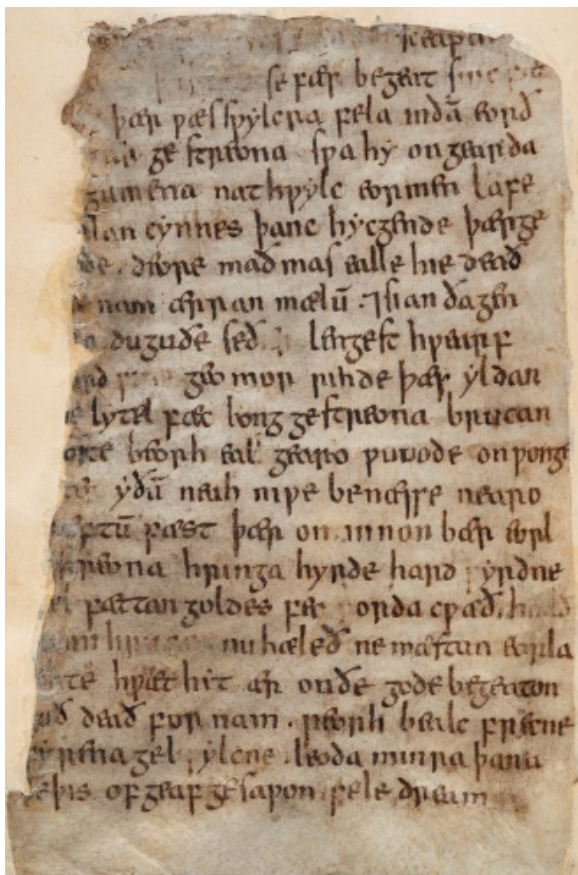 se fær begeat sinc
þær ƿæs sƿylcra fela indā eorð
ge streona sƿa hy ongearda
gumena nathƿylc eormen lafe
lan cynnes þanc hycgende þærge
de. deore maðmas ealle hie deað
nam ærran mælū. ⁊se an ða gen
duguðe se lengest hƿearf
geo mor rende þæs yldan
lytel fæc long gestreona brucan
beorh eal gearo ƿunode onƿonge
yðū neah niƿe benæsse nearo
fæst þær on innon bær eorl
streona hringa hyrde hard fyrdne
fættan goldes fea orda cƿæð.
nu hæleð ne mæstun eorla
hƿæt hit ær onðe gode begeaton
deað fornam. feorh beale frecne
fyrena ylcne. leoda minra þana
þis of geaf gesaƿon sele dream